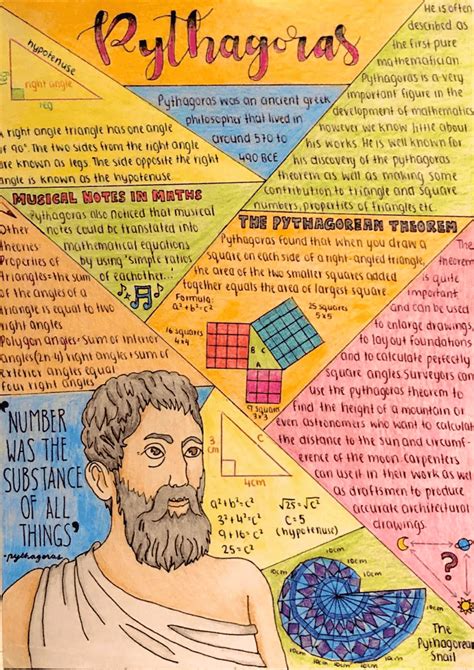 Pythagoras
hypotenuse
leg
right angle
leg
A right angle triangle has one angle
of 90°. The two sides from the right angle
are known as legs. The side opposite the right
angle is known as the hypotenuse.
Pythagoras was an ancient greek
philosopher that lived in
around 570 to
490 BCE
He is often
described as
the first pure
mathematician
Pythagoras is a very
important figure in the
development of mathematics
however we know little about
his works. He is well known for
his discovery of the pythagoras
theorem as well as making some
contribution to triangle and square
numbers, properties of triangles etc.
MUSICAL NOTES IN MATHS
Pythagoras also noticed that musical
notes could be translated into
mathematical equations
by using 'simple ratios
of eachother.'
Other
Theories:
Properties of
triangles=the sum
of the angles of a
triangle is equal to two
right angles
Polygon angles=sum of interior
angles(2n-4) right angles+sum of
exterior angles equal
four right angles
THE PYTHAGOREAN THEOREM
Pythagoras found that when you draw a
square on each side of a right-angled triangle,
the area of the two smaller squares added
together equals the area of largest square.
Formula:
a²+b²=c²
25 squares
5x5
16 squares
4x4
B
C
A
9 squares
3x3
The
theorem
is quite
important
and can be used
to enlarge drawing
to layout foundations
and to calculate perfectly
square angles Surveyors can
use the pythagoras theorem to
find the height of a mountain or
even astronomers who want to calculate
the distance to the sun and circumf-
erence of the moon. Carpenters
can use it in their work as well
as draftsmen to produce
accurate architectural
drawings.
"NUMBER
WAS THE
SUBSTANCE
OF ALL
THINGS"
-pythagoras
3
cm
4cm
a²+b²=c²
3²+4²=c²
9+16=c²
25=c²
√25=√c²
C=5
(hypotenuse)
10cm
10cm
10cm
10cm
10cm
10cm
10cm
10cm
?
The
Pythagorean
Snail